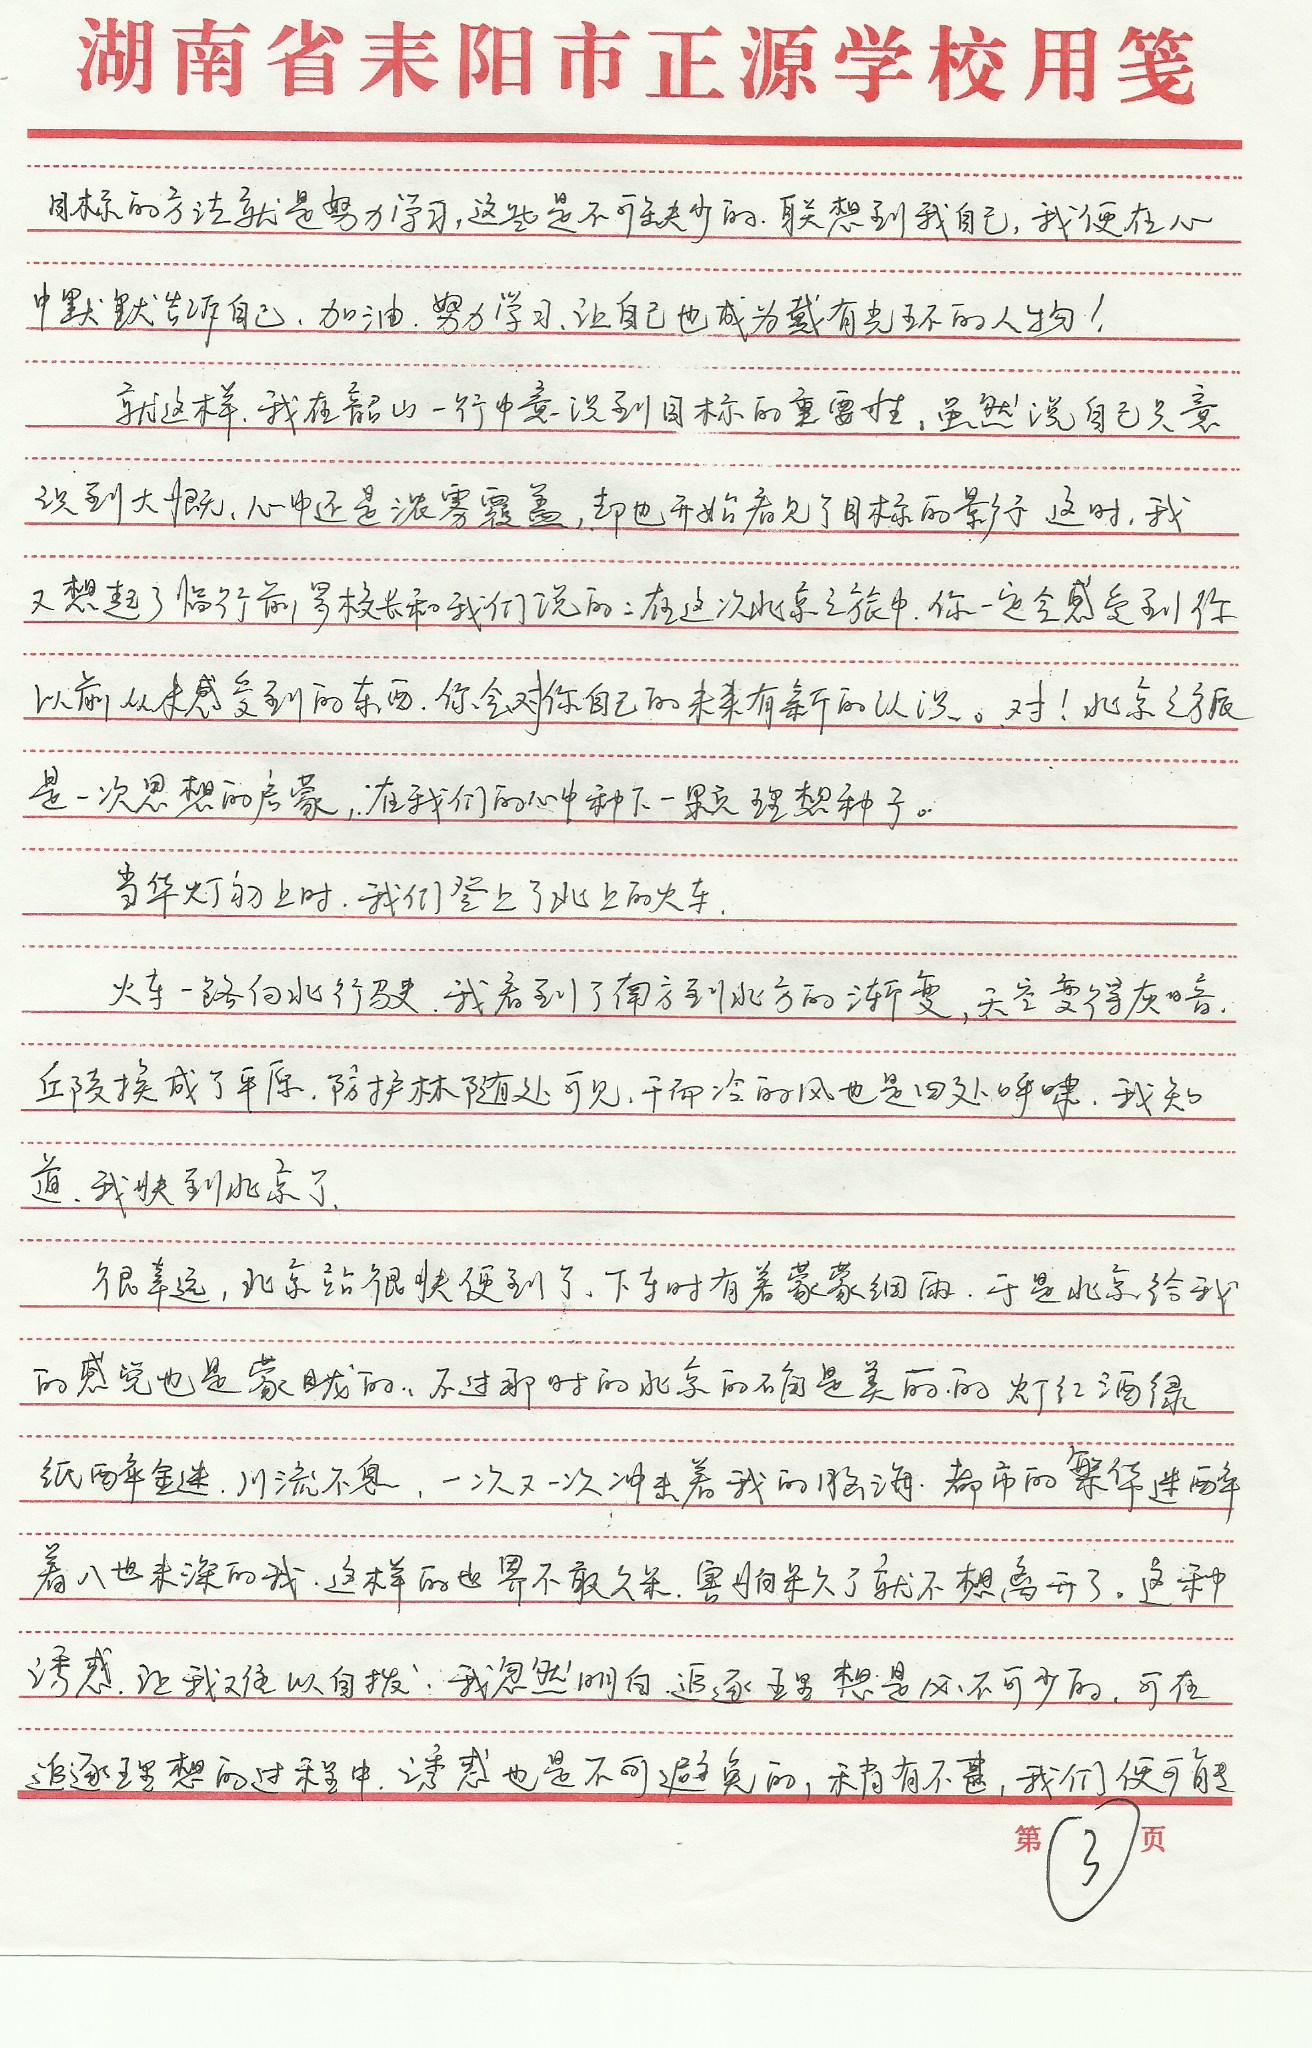 湖南省耒阳市正源学校用笺
目标的方法就是努力学习,这些是不可缺少的.联想到我自己,我便在心
中默默告诉自己、加油.努力学习、让自己也成为戴有光环的人物!
就这样.我在韶山一行中意识到目标的重要性,虽然说自己只意
识到大概、心中还是浓雾覆盖,却也开始看见了目标的影子 这时,我
又想起了临行前罗校长和我们说的:在这次北京之旅中.你一定会感受到你
以前从未感受到的东西.你会对你自己的未来有新的认识。对!北京之旅
是一次思想的启蒙,在我们的心中种下一颗理想种子。
当华灯初上时.我们登上了北上的火车.
火车一路向北行驶.我看到了南方到北方的渐变,天空变得灰暗.
丘陵换成了平原.防护林随处可见、干而冷的风也是四处呼啸.我知
道.我快到北京了.
很幸运,北京站很快便到了、下车时有着蒙蒙细雨.于是北京给我
的感觉也是蒙胧的、不过那时的北京的确是美丽的 灯红酒绿
纸醉金迷.川流不息,一次又一次冲击着我的脑海.都市的繁华迷醉
着入世未深的我.这样的世界不敢久呆.害怕呆久了就不想离开了。这种
诱惑.让我难以自拨.我忽然明白.追逐理想是必不可少的,可在
追逐理想的过程中.诱惑也是不可避免的,稍有不甚,我们便可能
第3页